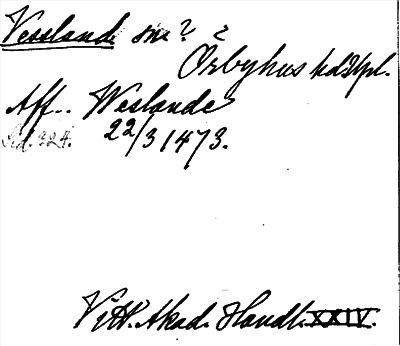 Vessland sn? 2
Örbyhus hd Upl.
Aff.. Weslande
Sid. 224. 22/3 1473.
Vitt. Akad. Handl. XXIV.